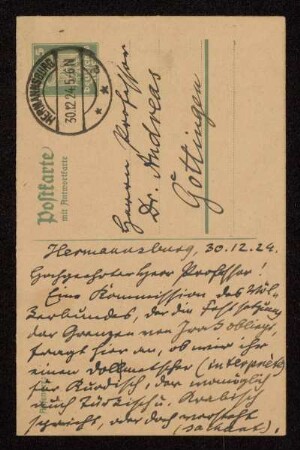 HERMANNSBURG
30.12.24. 5-6 N
5
Postkarte
mit Antwortkarte
Herrn Professor
Dr. Andreas
Göttingen
Hermannsburg, 30.12.24.
Hochgeehrter Herr Professor!
Eine Kommission des Völ-
kerbundes, der die Festsetzung
der Grenzen von Irak obliegt,
fragt hier an, ob wir ihr
einen Dollmetscher (interprète)
für Kurdisch, der womöglich
auch Türkisch u. Arabisch
spricht, oder doch versteht